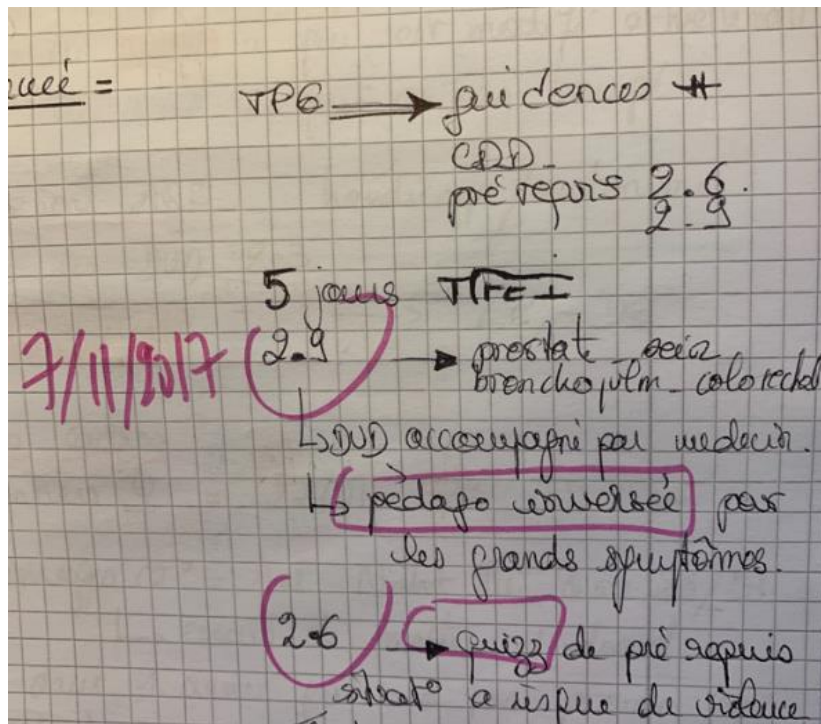 TPG → guidences #
CDD_
pré requis 2.6.
2.9
5 jours
7/11/2017 2.9 → prostat_ sein
broncho pulm_ colorectal
↳ DVD accompagné par medecin.
↳ pédago inversée par
les grands symptômes.
2.6 → quizz de pré requis
situat° a risque de violence